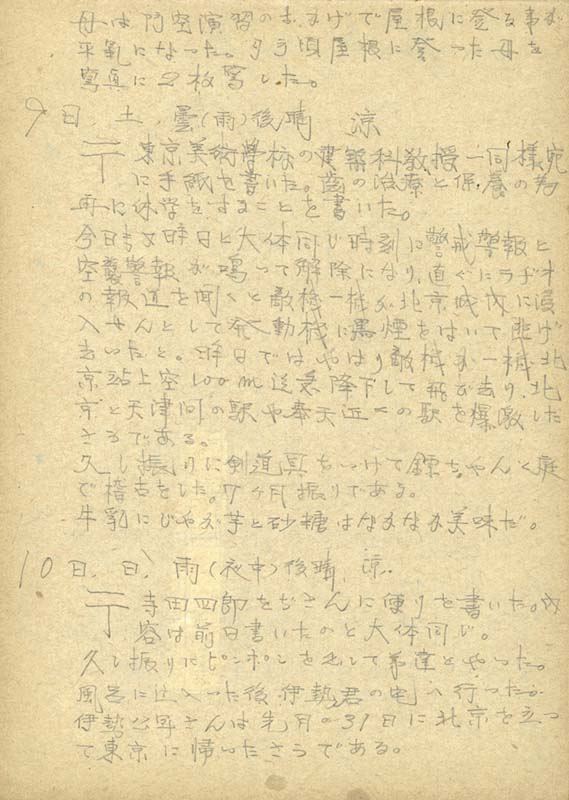 母は防空演習のおかげで屋根に登る事が
平気になった。夕方頃屋根に登った母を
写真に2枚写した。
9日、土、曇(雨)後晴 涼
〒 東京美術学校の建築科教授一同様宛
に手紙を書いた。歯の治療と保養の為
再に休学をすることを書いた。
今日も昨日と大体同じ時刻に警戒警報と
空襲警報が鳴って解除になり、直ぐにラヂオ
の報道を聞くと敵機一機が北京城内に侵
入せんとして発動機に黒煙をはいて逃げ
去いたと。昨日ではやはり敵機が一機北
京站上空100m迄急降下して飛び去り、北
京と天津間の駅や奉天近くの駅を爆撃した
さうである。
久し振りに剣道具をつけて ちゃんと庭
で稽古をした。7ヶ月振りである。
牛乳にじやが芋と砂糖はなかなか美味だ。
10日、日、雨(夜中)後晴、涼.
〒 寺田四郎をぢさんに便りを書いた。内
容は前日書いたのと大体同じ。
久し振りにピンポンを出して弟達とやった。
風呂に入った後伊勢君の宅へ行ったが
伊勢 さんは先月の31日に北京を立つ
て東京に帰いたさうである。